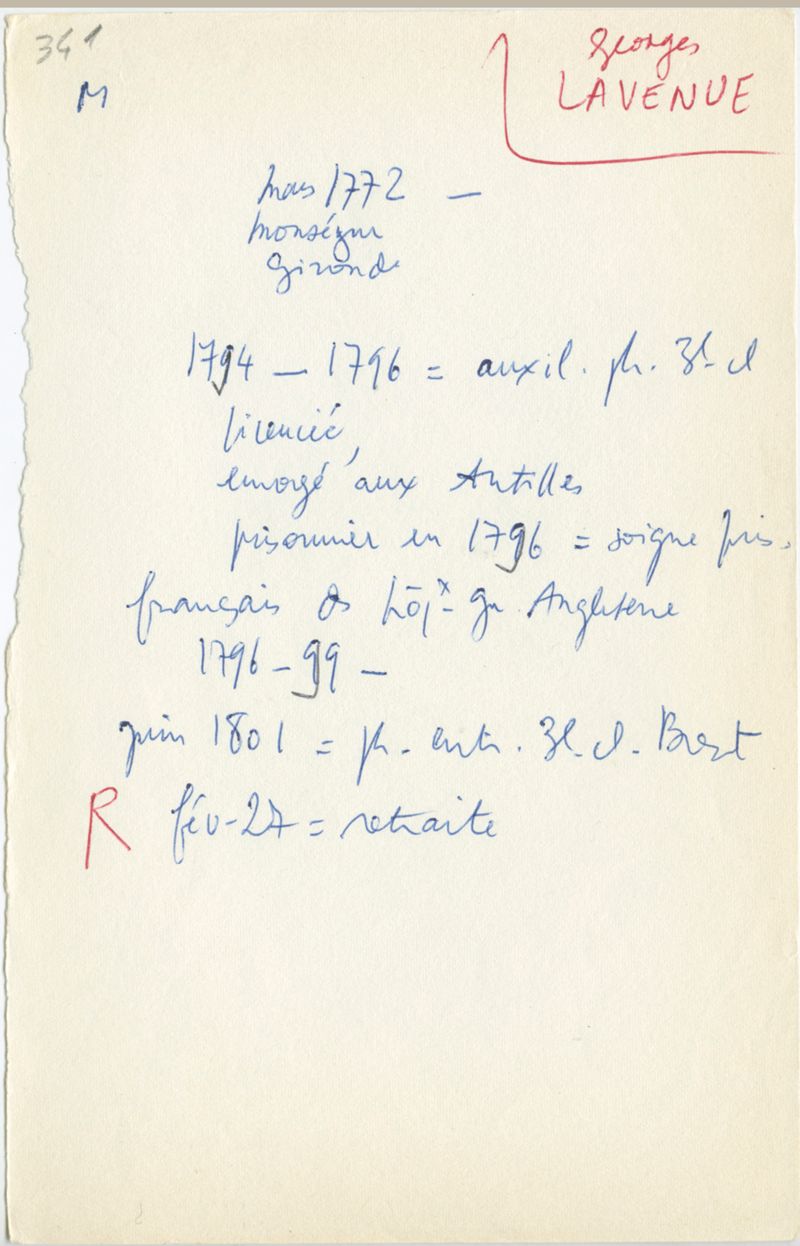 341
M
Georges
LAVENUE
mars 1772 —
Monségur
Gironde
1794 — 1796 = auxil. ph. 3e cl
licencié,
envoyé aux Antilles
prisonnier en 1796 = soigne pris.
français ds hôpx
Angleterre
1796 - 99 —
juin 1801 = ph. entr. 3e cl. Brest
R fév-27 = retraite